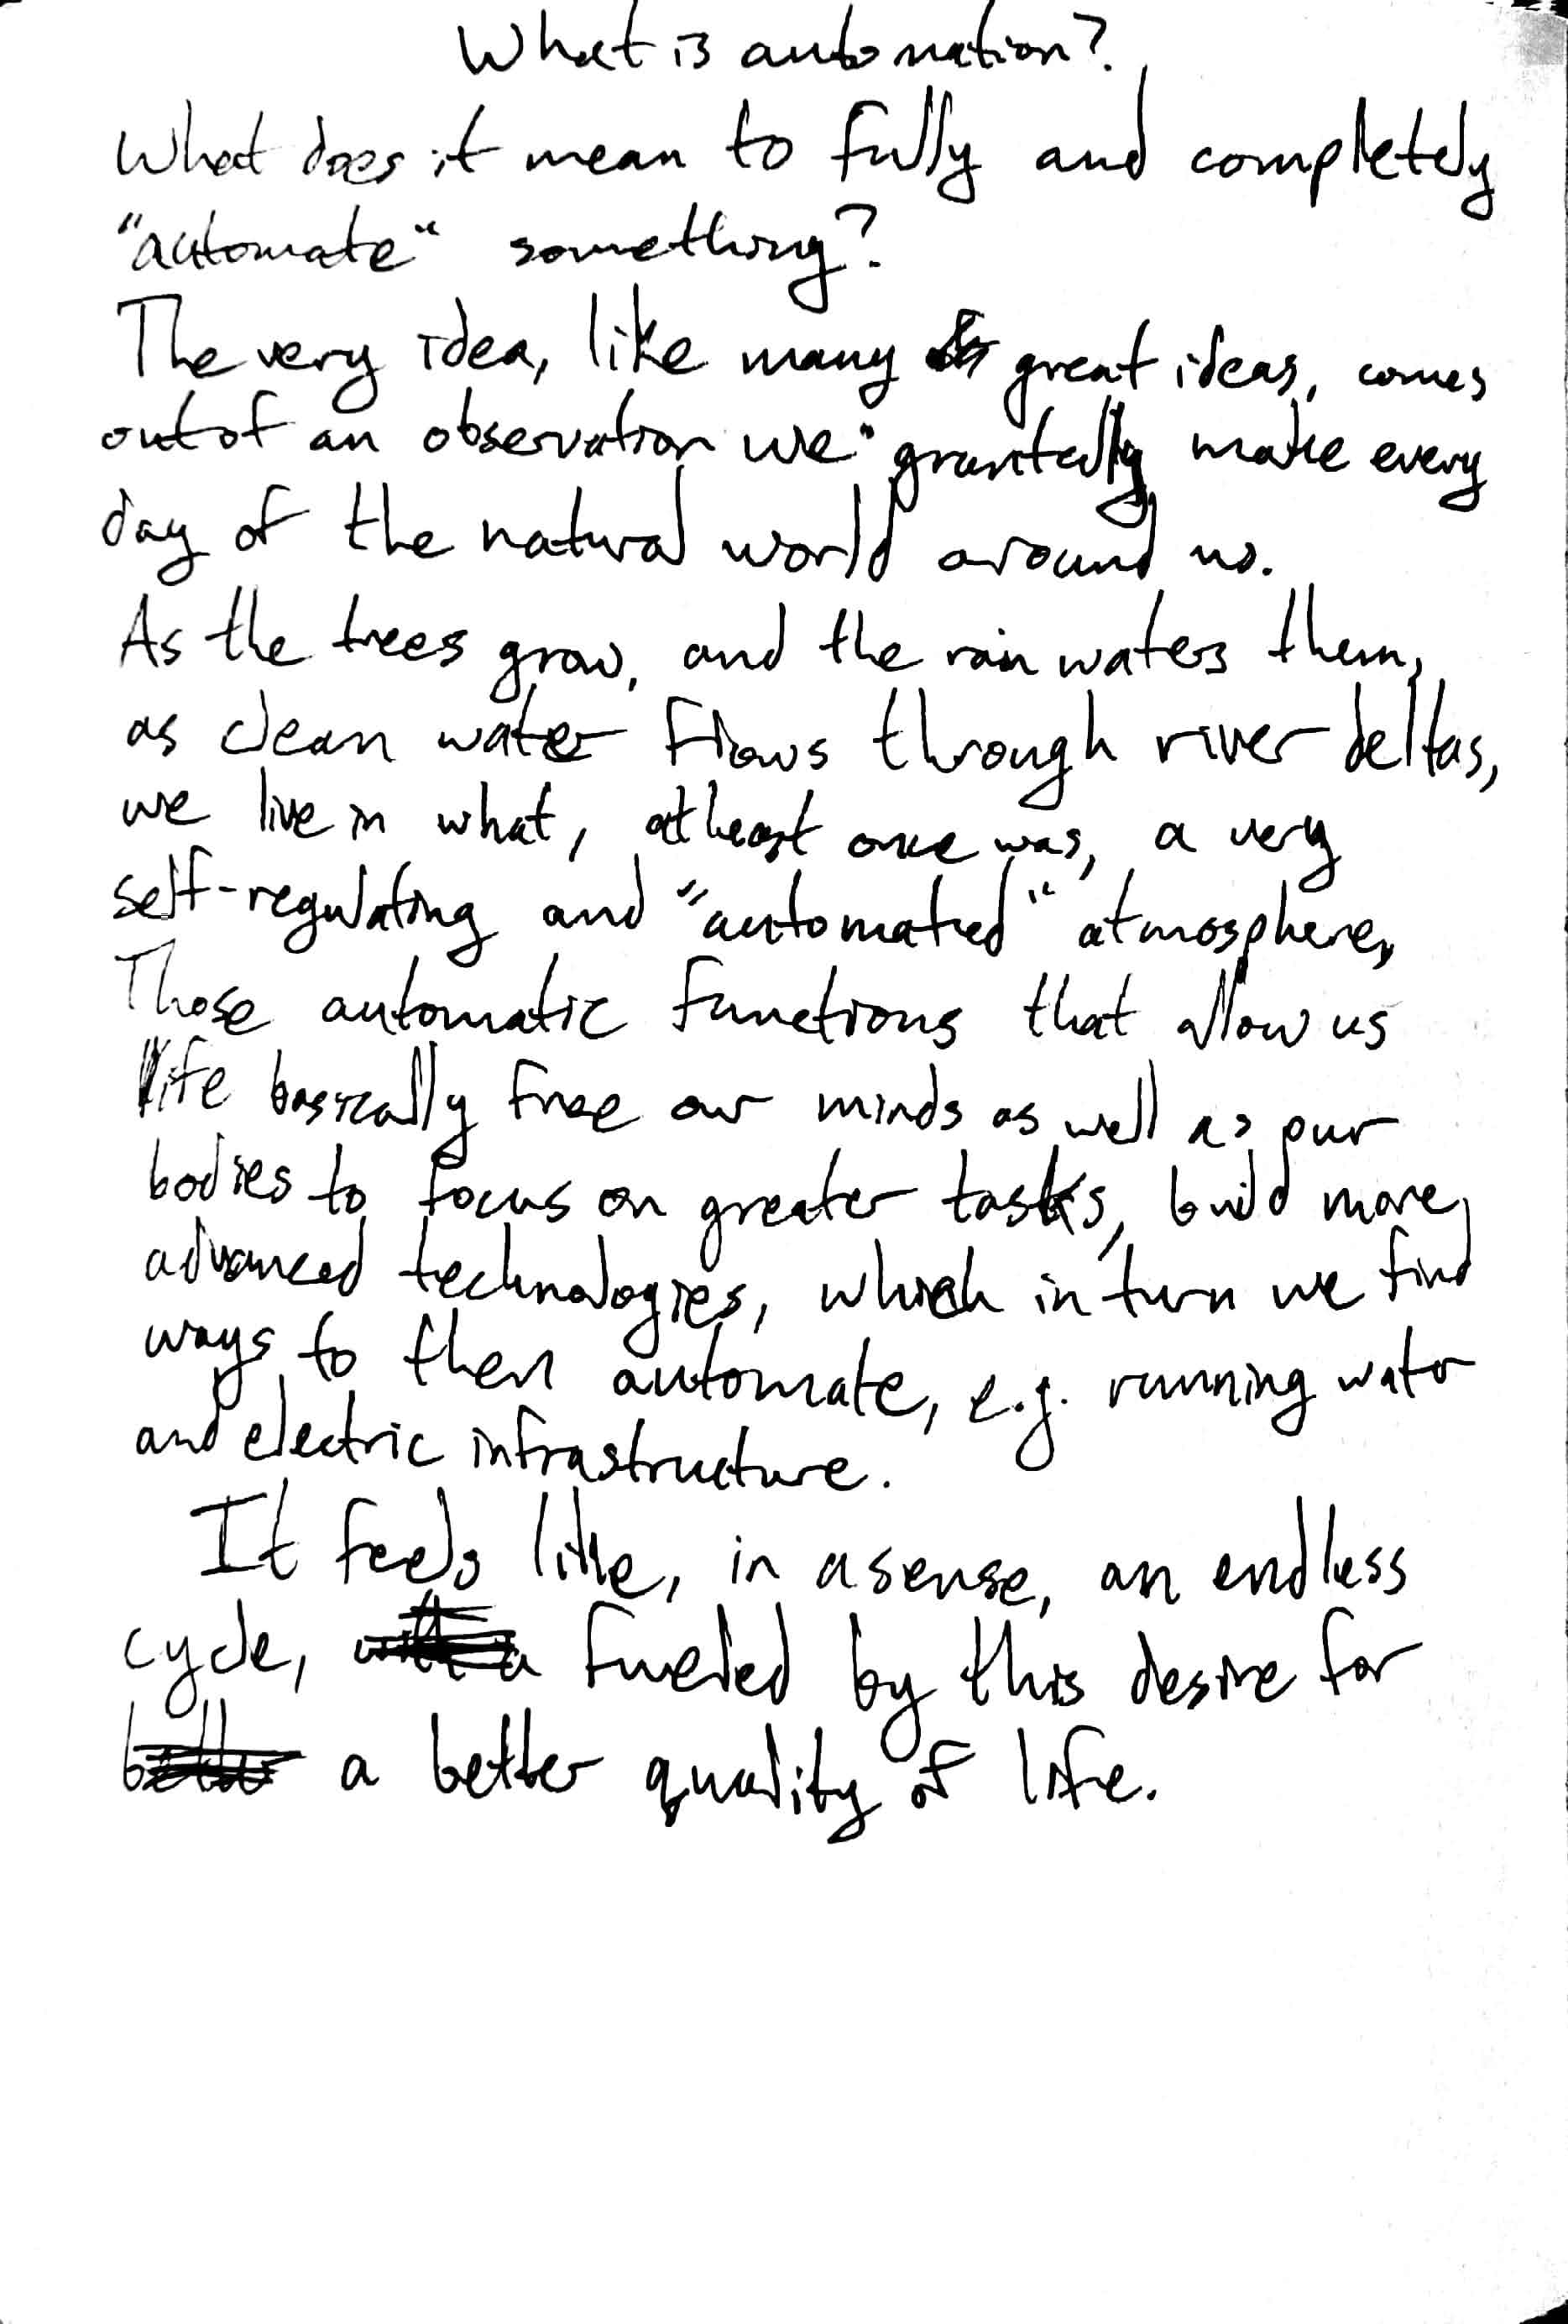 What is automation?
What does it mean to fully and completely
"automate" something?
The very idea, like many great ideas, comes
out of an observation we grantedly make every
day of the natural world around us.
As the trees grow, and the rain waters them,
as clean water flows through river deltas,
we live in what, at least once was, a very
self-regulating and "automated" atmosphere.
Those automatic functions that allow us
life basically free our minds as well as our
bodies to focus on greater tasks, build more
advanced technologies, which in turn we find
ways to then automate, e.g. running water
and electric infrastructure.
It feels like, in a sense, an endless
cycle, fueled by this desire for
a better quality of life.